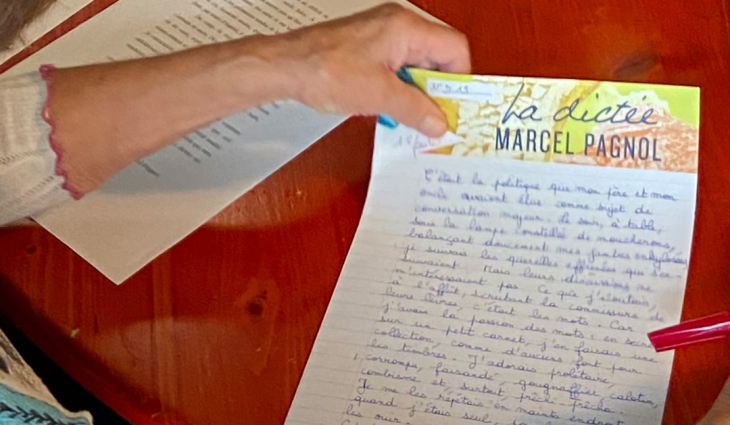 N° 9.13
La dictée
MARCEL PAGNOL
C'était la politique que mon père et mon
oncle avaient élue comme sujet de
conversation majeur. Le soir, à table,
sous la lampe constellée de moucherons,
balançant doucement mes jambes ankylosées
je suivais les querelles officielles qui s'en
suivaient. Mais leurs discussions ne
m'intéressaient pas. Ce que j'écoutais,
à l'affût, scrutant la commissure de
leurs lèvres, c'était les mots. Car
j'avais la passion des mots ; en secret,
sur un petit carnet, j'en faisais une
collection, comme d'aucuns font pour
les timbres. J'adorais prolétaire,
corrompu, faisandé, gougnaffier, calotin,
combisme et, surtout, prêchi-prêcha.
Je me les répétais en maints endroits
quand j'étais seul,
les